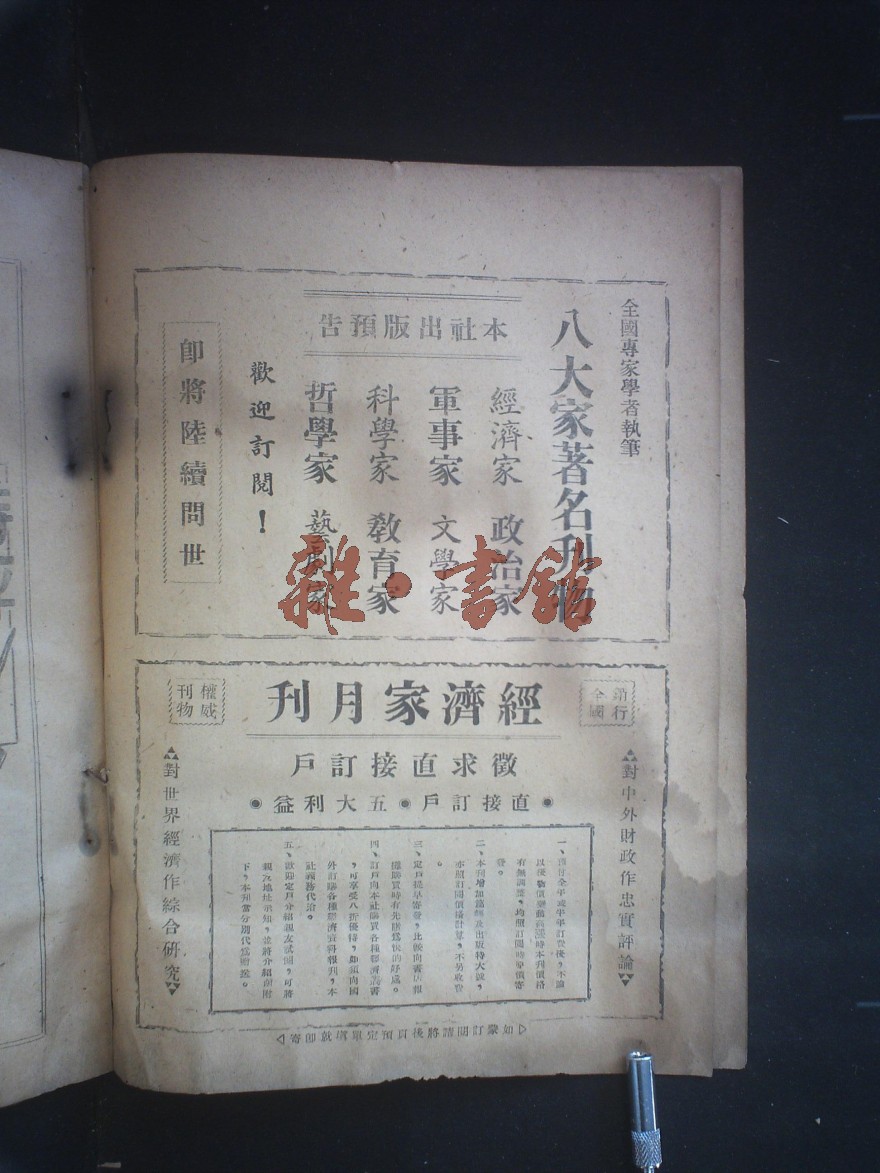 全國專家學者執筆
八大家著名刊物
本社出版預告
經濟家 政治家
軍事家 文學家
科學家 教育家
哲學家 藝劇家
歡迎訂閱！
即將陸續問世
雜·書館
銷行全國
經濟家月刊
權威刊物
徵求直接訂戶
●直接訂戶●五大利益●
對中外財政作忠實評論
一、預付全年或半年訂費後，不論
以後物價變動漲時本刊價格
有無調整，均照訂閱時單價寄
發。
二、本刊增加篇幅及出版特大號，
亦照訂閱價格計算，不另收費
。
三、定戶提早寄發，比較向書店報
攤購買時有先睹為快的好處。
四、訂戶向本社購買各種經濟叢書
，可享受八折優待，如須向國
外訂購各種經濟資料報刊，本
社義務代洽。
五、歡迎定戶介紹親友試閱，可將
親友地址示知，並將介紹函附
下，本刊當分別代為贈送。
對世界經濟作綜合研究
如蒙訂閱請將後頁預定單填就即寄